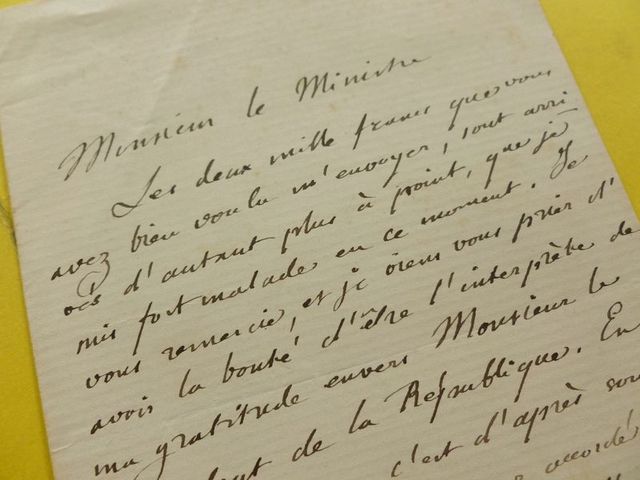 Monsieur le Ministre
Les deux mille francs que vous
avez bien voulu m'envoyer, sont arri
vés d'autant plus à point, que je
suis fort malade en ce moment. Je
vous remercie, et je viens vous prier d'
avoir la bonté d'être l'interprète de
ma gratitude envers Monsieur le
de la République. En
c'est d'après
accordé